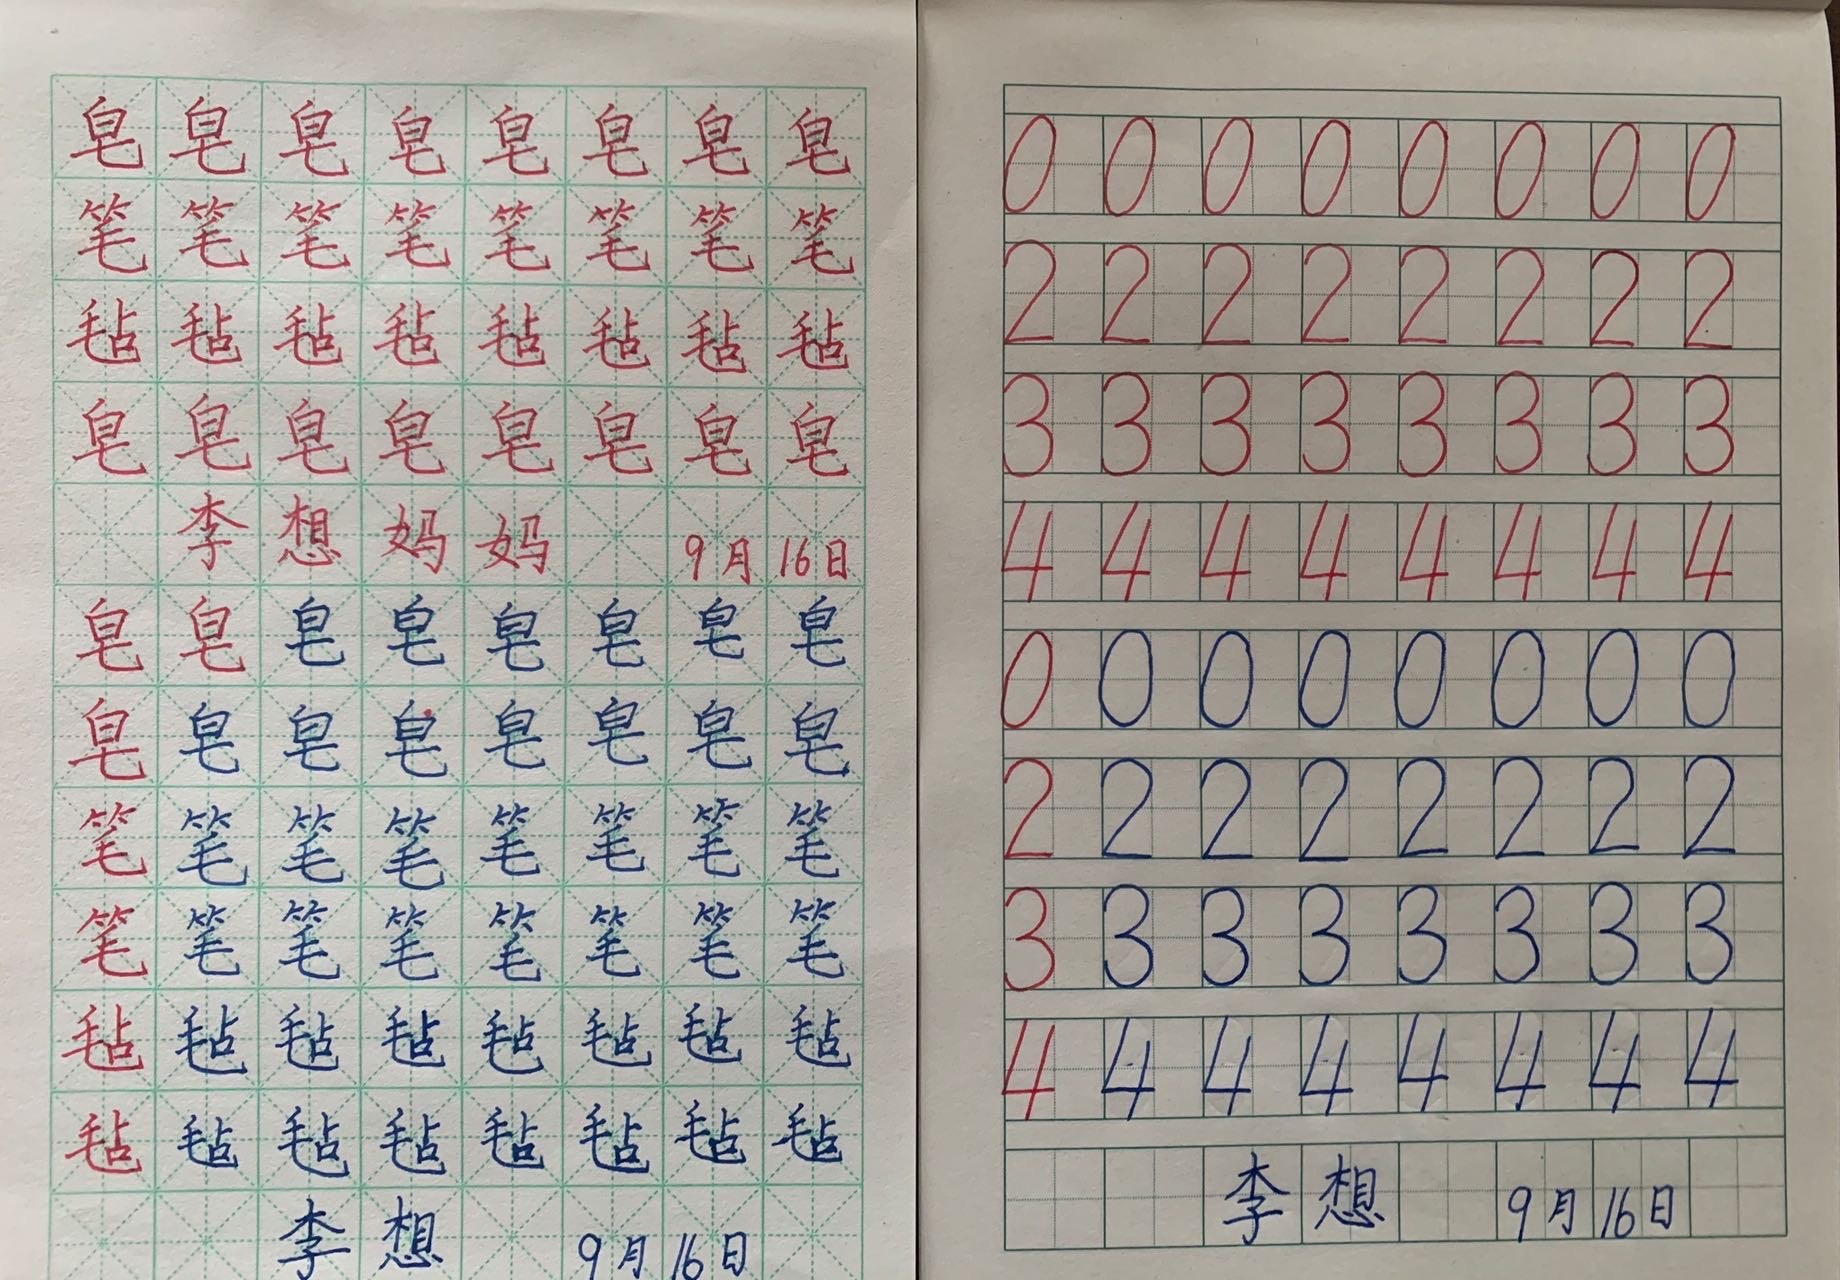 皂皂皂皂皂皂皂皂
笔笔笔笔笔笔笔笔
毡毡毡毡毡毡毡毡
皂皂皂皂皂皂皂皂
李想妈妈 9月16日
皂皂皂皂皂皂皂皂
皂皂皂皂皂皂皂皂
笔笔笔笔笔笔笔笔
笔笔笔笔笔笔笔笔
毡毡毡毡毡毡毡毡
毡毡毡毡毡毡毡毡
李想 9月16日
0 0 0 0 0 0 0 0
2 2 2 2 2 2 2 2
3 3 3 3 3 3 3 3
4 4 4 4 4 4 4 4
0 0 0 0 0 0 0 0
2 2 2 2 2 2 2 2
3 3 3 3 3 3 3 3
4 4 4 4 4 4 4 4
李想 9月16日